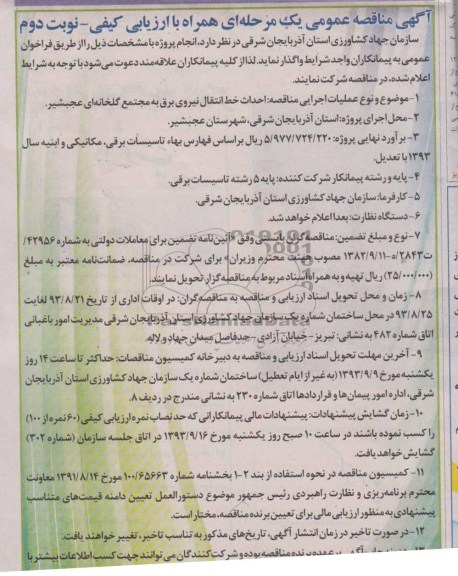 آگهی مناقصه عمومی یک مرحله‌ای همراه با ارزیابی کیفی- نوبت دوم
سازمان جهاد کشاورزی استان آذربایجان شرقی در نظر دارد، انجام پروژه با مشخصات ذیل را از طریق فراخوان
عمومی به پیمانکاران واجد شرایط واگذار نماید. لذا از کلیه پیمانکاران علاقه‌مند دعوت می‌شود با توجه به شرایط
اعلام شده، در مناقصه شرکت نمایند.
۱- موضوع و نوع عملیات اجرایی مناقصه: احداث خط انتقال نیروی برق به مجتمع گلخانه‌ای عجبشیر.
۲- محل اجرای پروژه: استان آذربایجان شرقی، شهرستان عجبشیر.
۳- برآورد نهایی پروژه: ۵/۹۷۷/۷۲۴/۲۲۰ ریال بر اساس فهارس بهاء تاسیسات برقی، مکانیکی و ابنیه سال
۱۳۹۳ با تعدیل.
۴- پایه و رشته پیمانکار شرکت کننده: پایه ۵ رشته تاسیسات برقی.
۵- کارفرما: سازمان جهاد کشاورزی استان آذربایجان شرقی.
۶- دستگاه نظارت: بعدا اعلام خواهد شد.
۷- نوع و مبلغ تضمین: مناقصه‌گران بایستی وفق «آئین نامه تضمین برای معاملات دولتی به شماره ۴۲۹۵۶/
ت۲۸۴۳ه-۱۳۸۲/۹/۱۱ مصوب هیئت محترم وزیران» برای شرکت در مناقصه، ضمانت‌نامه معتبر به مبلغ
(۲۵/۰۰۰/۰۰۰) ریال تهیه و به همراه اسناد مربوط به مناقصه‌گزار تحویل نمایند.
۸- زمان و محل تحویل اسناد ارزیابی و مناقصه به مناقصه گران: در اوقات اداری از تاریخ ۹۳/۸/۲۱ لغایت
۹۳/۸/۲۵ در محل ساختمان شماره یک سازمان جهاد کشاورزی استان آذربایجان شرقی مدیریت امور باغبانی
اتاق شماره ۴۸۲ به نشانی: تبریز- خیابان آزادی - حدفاصل میدان جهاد و لاله.
۹- آخرین مهلت تحویل اسناد ارزیابی و مناقصه به دبیرخانه کمیسیون مناقصات: حداکثر تا ساعت ۱۴ روز
یکشنبه مورخ ۱۳۹۳/۹/۹ (به غیر از ایام تعطیل) ساختمان شماره یک سازمان جهاد کشاورزی استان آذربایجان
شرقی، اداره امور پیمان‌ها و قراردادها اتاق شماره ۲۳۰ به نشانی مندرج در ردیف ۸.
۱۰- زمان گشایش پیشنهادات: پیشنهادات مالی پیمانکارانی که حد نصاب نمره ارزیابی کیفی (۶۰ نمره از ۱۰۰)
را کسب نموده باشند در ساعت ۱۰ صبح روز یکشنبه مورخ ۱۳۹۳/۹/۱۶ در اتاق جلسه سازمان (شماره ۳۰۲)
گشایش خواهد یافت.
۱۱- کمیسیون مناقصه در نحوه استفاده از بند ۲-۱ بخشنامه شماره ۱۰۰/۶۵۶۶۳ مورخ ۱۳۹۱/۸/۱۴ معاونت
محترم برنامه‌ریزی و نظارت راهبردی رئیس جمهور موضوع دستورالعمل تعیین دامنه قیمت‌های متناسب
پیشنهادی به منظور ارزیابی مالی برای تعیین برنده مناقصه، مختار است.
۱۲- در صورت تاخیر در زمان انتشار آگهی، تاریخ‌های مذکور به تناسب تاخیر، تغییر خواهند یافت.
آگهی بر عهده برنده مناقصه بوده و شرکت کنندگان می‌توانند جهت کسب اطلاعات بیشتر با